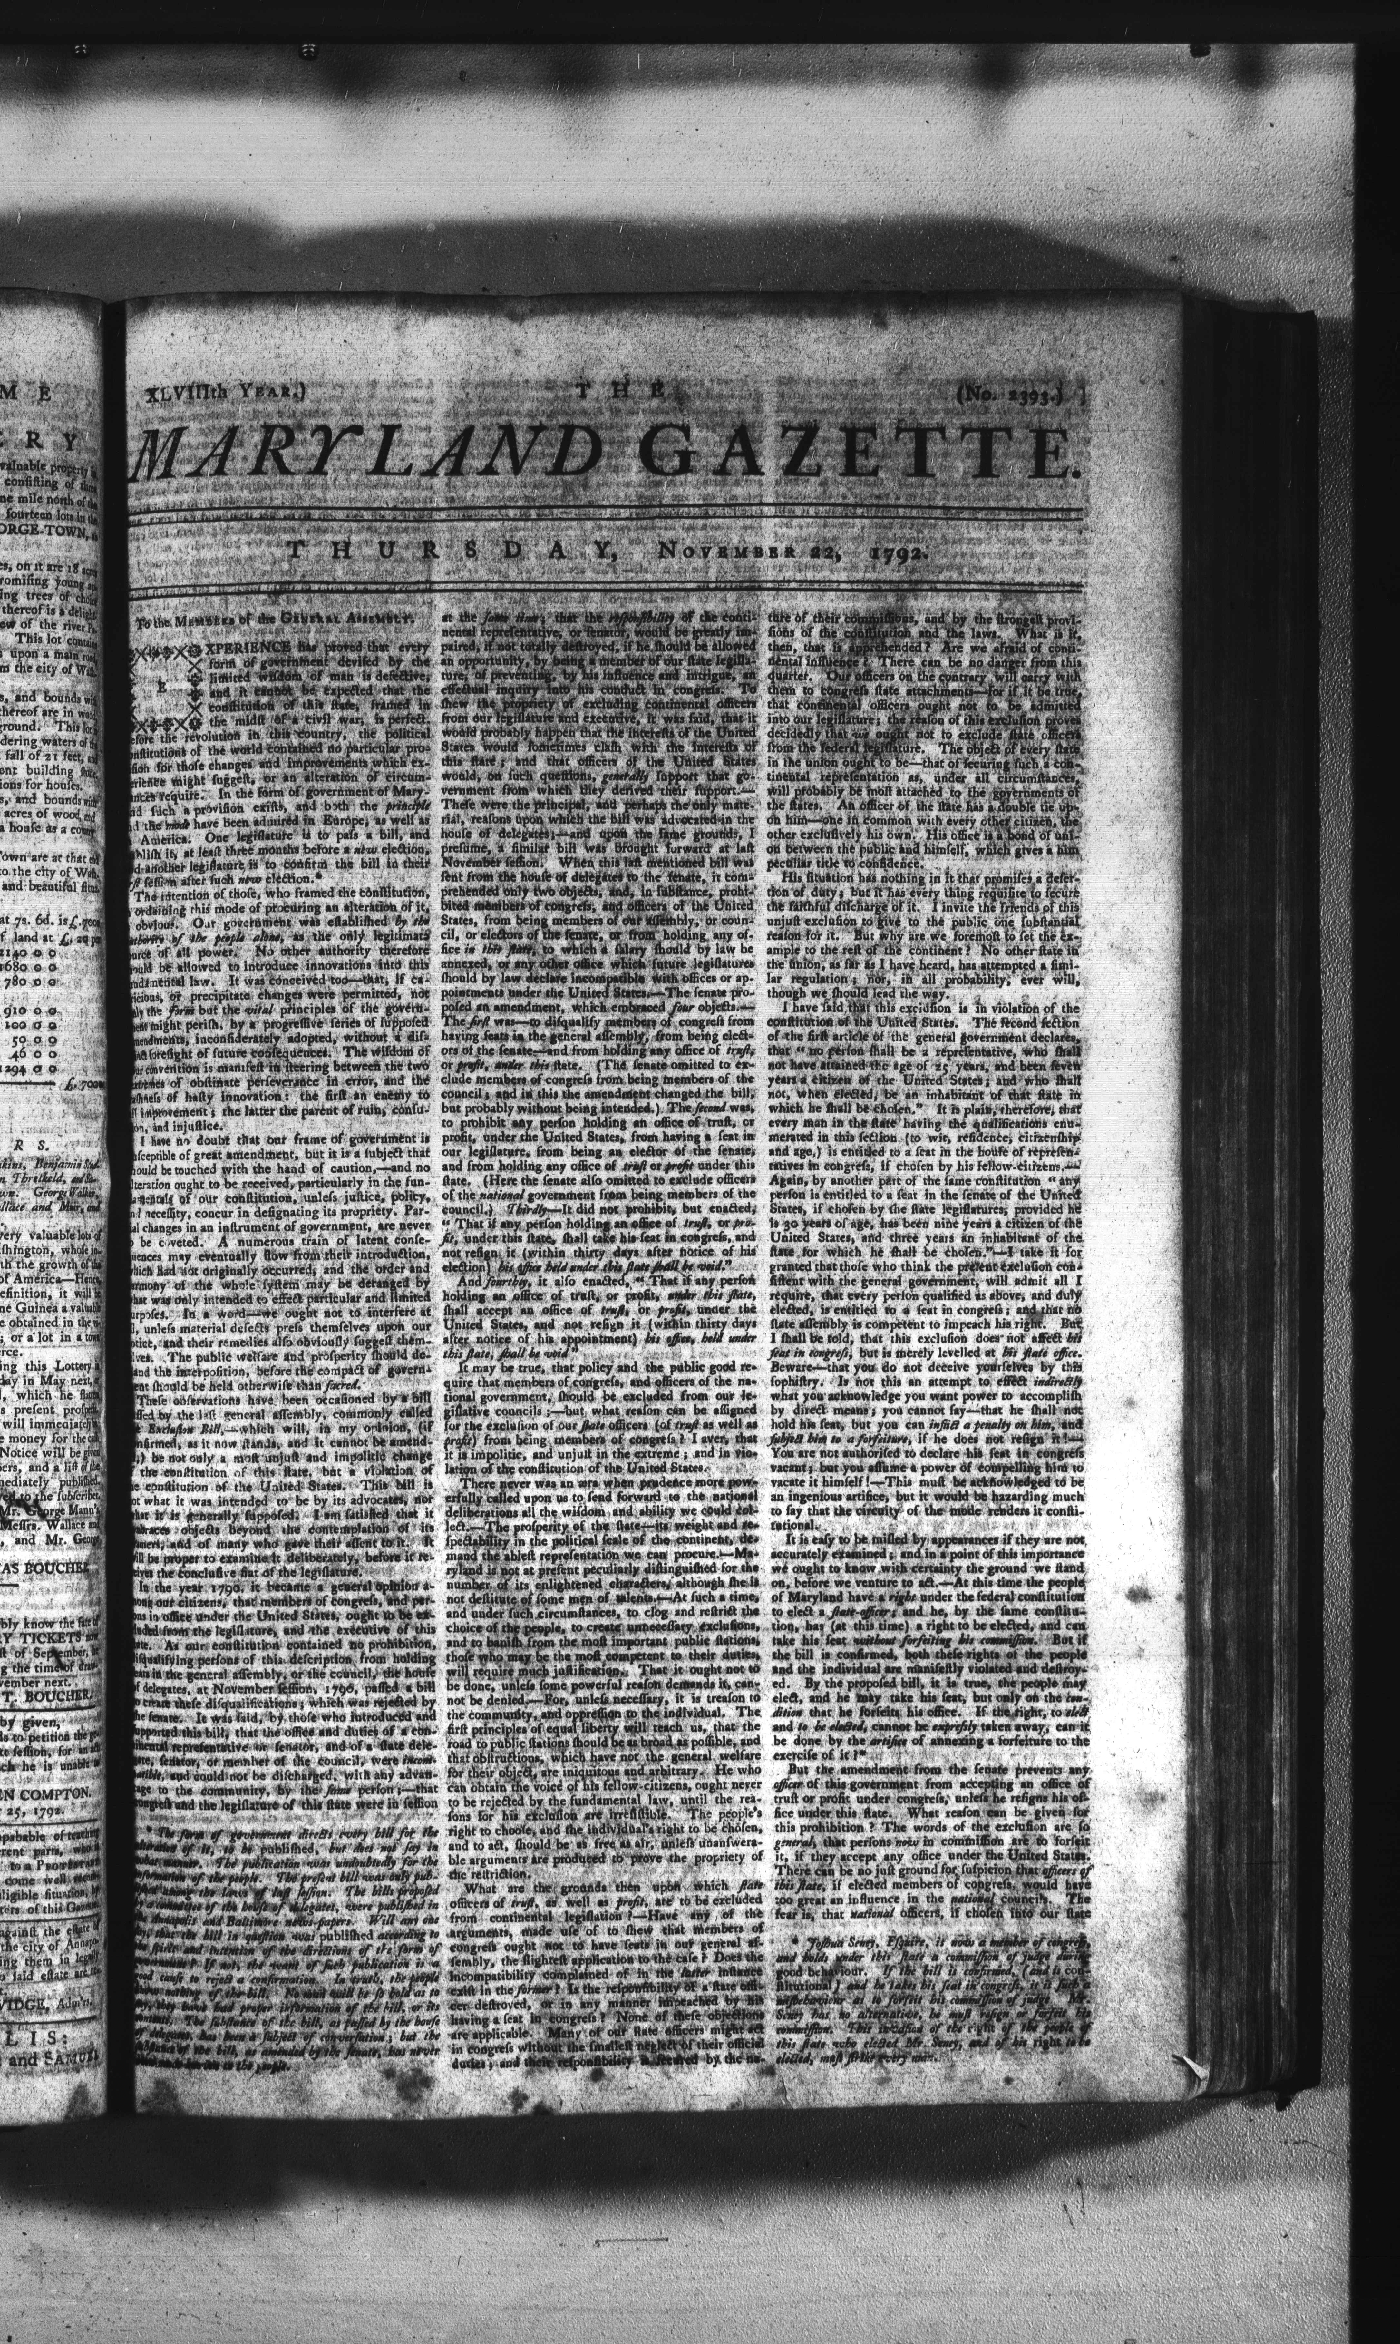 XLVIIIth YEAR.)
THE
(No. 2393.)
MARYLAND GAZETTE.
THURSDAY, NOVEMBER 22, 1792.
To the MEMBERS of the GENERAL ASSEMBLY.
EXPERIENCE has proved that every
form of government devised by the
limited wisdom of man is defective,
and it cannot be expected that the
constitution of this state, framed in
the midst of a civil war, is perfect.
the revolution in this country, the political
of the world contained no particular pro-
for those changes and improvements which ex-
might suggest, or an alteration of circum-
require. In the form of government of Mary-
such a provision exists, and both the principle
the mode have been admired in Europe, as well as
America. One legislature is to pass a bill, and
it, at least three months before a new election,
another legislature is to confirm the bill in their
session after such new election.*
The intention of those, who framed the constitution,
ordaining this mode of procuring an alteration of it,
obvious. Our government was established by the
of the people alone, as the only legitimate
of all power. No other authority therefore
be allowed to introduce innovations into this
law. It was conceived too—that, if ca-
or precipitate changes were permitted, not
the form but the vital principles of the govern-
might perish, by a progressive series of supposed
inconsiderately adopted, without a dis-
foresight of future consequences. The wisdom of
convention is manifest in steering between the two
of obstinate perseverance in error, and the
of hasty innovation: the first an enemy to
improvement; the latter the parent of ruin, confu-
and injustice.
I have no doubt that our frame of government is
of great amendment, but it is a subject that
should be touched with the hand of caution,—and no
ought to be received, particularly in the fun-
of our constitution, unless justice, policy,
necessity, concur in designating its propriety. Par-
changes in an instrument of government, are never
be coveted. A numerous train of latent conse-
may eventually flow from their introduction,
which had not originally occurred; and the order and
of the whole system may be deranged by
what was only intended to effect particular and limited
purposes. In a word—we ought not to interfere at
unless material defects press themselves upon our
notice, and their remedies also obviously suggest them-
The public welfare and prosperity should de-
the interposition, before the compact of govern-
should be held otherwise than sacred.
These observations have been occasioned by a bill
by the last general assembly, commonly called
Exclusion Bill,—which will, in my opinion, (if
confirmed, as it now stands, and it cannot be amend-
be not only a most unjust and impolitic change
the constitution of this state, but a violation of
constitution of the United States. This bill is
not what it was intended to be by its advocates, nor
what it is generally supposed. I am satisfied that it
embraces objects beyond the contemplation of its
and of many who gave their assent to it. It
be proper to examine it deliberately, before it re-
the conclusive fiat of the legislature.
In the year 1790, it became a general opinion a-
our citizens, that members of congress, and per-
in office under the United States, ought to be ex-
from the legislature, and the executive of this
state. As our constitution contained no prohibition,
disqualifying persons of this description from holding
in the general assembly, or the council, the house
of delegates, at November session, 1790, passed a bill
to create these disqualifications; which was rejected by
the senate. It was said, by those who introduced and
supported this bill, that the office and duties of a con-
tinental representative or senator, and of a state dele-
senator, or member of the council, were incom-
and could not be discharged, with any advan-
to the community, by the same person;—that
congress and the legislature of this state were in session
* The form of government directs every bill for the
of it, to be published, but does not say in
manner. The publication was undoubtedly for the
information of the people. The present bill was only pub-
among the laws of last session. The bills proposed
of the house of delegates, were published in
Annapolis and Baltimore news-papers. Will any one
that the bill in question was published according to
the spirit and intention of the directions of the form of
If not, the want of such publication is a
good cause to reject a confirmation. In truth, the people
know nothing of the bill. No man will be so bold as to
they have had proper information of the bill, or its
The substance of the bill, as passed by the house
of delegates, has been a subject of conversation; but the
of the bill, as amended by the senate, has never
at the same time; that the responsibility of the conti-
nental representative, or senator, would be greatly im-
paired, if not totally destroyed, if he should be allowed
an opportunity, by being a member of our state legisla-
ture, of preventing, by his influence and intrigue, an
effectual inquiry into his conduct in congress. To
shew the propriety of excluding continental officers
from our legislature and executive, it was said, that it
would probably happen that the interests of the United
States would sometimes clash with the interests of
this state; and that officers of the United States
would, on such questions, generally support that go-
vernment from which they derived their support.—
These were the principal, and perhaps the only mate-
rial, reasons upon which the bill was advocated in the
house of delegates;—and upon the same grounds, I
presume, a similar bill was brought forward at last
November session. When this last mentioned bill was
sent from the house of delegates to the senate, it com-
prehended only two objects, and, in substance, prohi-
bited members of congress, and officers of the United
States, from being members of our assembly, or coun-
cil, or electors of the senate, or from holding any of-
fice in this state, to which a salary should by law be
annexed, or any other office which future legislatures
should by law declare incompatible with offices or ap-
pointments under the United States.—The senate pro-
posed an amendment, which embraced four objects.—
The first was—to disqualify members of congress from
having seats in the general assembly, from being elect-
ors of the senate—and from holding any office of trust,
or profit, under this state. (The senate omitted to ex-
clude members of congress from being members of the
council; and in this the amendment changed the bill,
but probably without being intended.) The second was,
to prohibit any person holding an office of trust, or
profit, under the United States, from having a seat in
our legislature, from being an elector of the senate,
and from holding any office of trust or profit under this
state. (Here the senate also omitted to exclude officers
of the national government from being members of the
council.) Thirdly—It did not prohibit, but enacted,
"That if any person holding an office of trust, or pro-
fit, under this state, shall take his seat in congress, and
not resign it (within thirty days after notice of his
election) his office held under this state shall be void."
And fourthly, it also enacted, "That if any person
holding an office of trust, or profit, under this state,
shall accept an office of trust, or profit, under the
United States, and not resign it (within thirty days
after notice of his appointment) his office, held under
this state, shall be void"
It may be true, that policy and the public good re-
quire that members of congress, and officers of the na-
tional government, should be excluded from our le-
gislative councils;—but, what reason can be assigned
for the exclusion of our state officers (of trust as well as
profit) from being members of congress? I aver, that
it is impolitic, and unjust in the extreme; and in vio-
lation of the constitution of the United States.
There never was an æra when prudence more pow-
erfully called upon us to send forward to the national
deliberations all the wisdom and ability we could col-
lect.—The prosperity of the state—its weight and re-
spectability in the political scale of the continent, de-
mand the ablest representation we can procure.—Ma-
ryland is not at present peculiarly distinguished for the
number of its enlightened characters, although she is
not destitute of some men of talents.—At such a time,
and under such circumstances, to clog and restrict the
choice of the people, to create unnecessary exclusions,
and to banish from the most important public stations,
those who may be the most competent to their duties,
will require much justification. That it ought not to
be done, unless some powerful reason demands it, can-
not be denied.—For, unless necessary, it is treason to
the community, and oppression to the individual. The
first principles of equal liberty will teach us, that the
road to public stations should be as broad as possible, and
that obstructions, which have not the general welfare
for their object, are iniquitous and arbitrary. He who
can obtain the voice of his fellow-citizens, ought never
to be rejected by the fundamental law, until the rea-
sons for his exclusion are irresistible. The people's
right to choose, and the individual's right to be chosen,
and to act, should be as free as air, unless unanswera-
ble arguments are produced to prove the propriety of
the restriction.
What are the grounds then upon which state
officers of trust, as well as profit, are to be excluded
from continental legislation?—Have any of the
arguments, made use of to shew that members of
congress ought not to have seats in our general as-
sembly, the slightest application to the case? Does the
incompatibility complained of in the latter instance
exist in the former? Is the responsibility of a state offi-
cer destroyed, or in any manner impeached by his
having a seat in congress? None of these objections
are applicable. Many of our state officers might act
in congress without the smallest neglect of their official
duties; and their responsibility is secured by the na-
ture of their commissions, and by the strongest provi-
sions of the constitution and the laws. What is it,
then, that is apprehended? Are we afraid of conti-
nental influence? There can be no danger from this
quarter. Our officers on the contrary, will carry with
them to congress state attachments—for if it be true,
that continental officers ought not to be admitted
into our legislature; the reason of this exclusion proves
decidedly that we ought not to exclude state officers
from the federal legislature. The object of every state
in the union ought to be—that of securing such a con-
tinental representation as, under all circumstances,
will probably be most attached to the governments of
the states. An officer of the state has a double tie up-
on him—one in common with every other citizen, the
other exclusively his own. His office is a bond of uni-
on between the public and himself, which gives a him
peculiar title to confidence.
His situation has nothing in it that promises a deser-
tion of duty; but it has every thing requisite to secure
the faithful discharge of it. I invite the friends of this
unjust exclusion to give to the public one substantial
reason for it. But why are we foremost to set the ex-
ample to the rest of the continent? No other state in
the union, as far as I have heard, has attempted a simi-
lar regulation; nor, in all probability, ever will,
though we should lead the way.
I have said that this exclusion is in violation of the
constitution of the United States. The second section
of the first article of the general government declares,
that "no person shall be a representative, who shall
not have attained the age of 25 years, and been seven
years a citizen of the United States; and who shall
not, when elected, be an inhabitant of that state in
which he shall be chosen." It is plain, therefore, that
every man in the state having the qualifications enu-
merated in this section (to wit, residence, citizenship
and age,) is entitled to a seat in the house of represen-
tatives in congress, if chosen by his fellow-citizens.—
Again, by another part of the same constitution "any
person is entitled to a seat in the senate of the United
States, if chosen by the state legislatures, provided he
is 30 years of age, has been nine years a citizen of the
United States, and three years an inhabitant of the
state for which he shall be chosen."—I take it for
granted that those who think the present exclusion con-
sistent with the general government, will admit all I
require, that every person qualified as above, and duly
elected, is entitled to a seat in congress; and that no
state assembly is competent to impeach his right. But
I shall be told, that this exclusion does not affect his
seat in congress, but is merely levelled at his state office.
Beware—that you do not deceive yourselves by this
sophistry. Is not this an attempt to effect indirectly
what you acknowledge you want power to accomplish
by direct means; you cannot say—that he shall not
hold his seat, but you can inflict a penalty on him, and
subject him to a forfeiture, if he does not resign it!—
You are not authorised to declare his seat in congress
vacant; but you assume a power of compelling him to
vacate it himself!—This must be acknowledged to be
an ingenious artifice, but it would be hazarding much
to say that the circuity of the mode renders it consti-
tutional.
It is easy to be misled by appearances if they are not
accurately examined; and in a point of this importance
we ought to know with certainty the ground we stand
on, before we venture to act.—At this time the people
of Maryland have a right under the federal constitution
to elect a state-officer; and he, by the same constitu-
tion, has (at this time) a right to be elected, and can
take his seat without forfeiting his commission. But if
the bill is confirmed, both these rights of the people
and the individual are manifestly violated and destroy-
ed. By the proposed bill, it is true, the people may
elect, and he may take his seat, but only on the con-
dition that he forfeits his office. If the right, to elect
and to be elected, cannot be expressly taken away, can it
be done by the artifice of annexing a forfeiture to the
exercise of it?*
But the amendment from the senate prevents any
officer of this government from accepting an office of
trust or profit under congress, unless he resigns his of-
fice under this state. What reason can be given for
this prohibition? The words of the exclusion are so
general, that persons now in commission are to forfeit
it, if they accept any office under the United States.
There can be no just ground for suspicion that officers of
this state, if elected members of congress, would have
too great an influence in the national councils. The
fear is, that national officers, if chosen into our state
* Joshua Seney, Esquire, is now a member of congress,
and holds under this state a commission of judge during
good behaviour. If the bill is confirmed, (and is con-
stitutional) and he takes his seat in congress, it is such a
misbehaviour as to forfeit his commission of judge. Mr.
Seney has no alternative, he must resign or forfeit his
commission. This invasion of the right of the people of
this state who elected Mr. Seney, and of his right to be
elected, must strike every man.